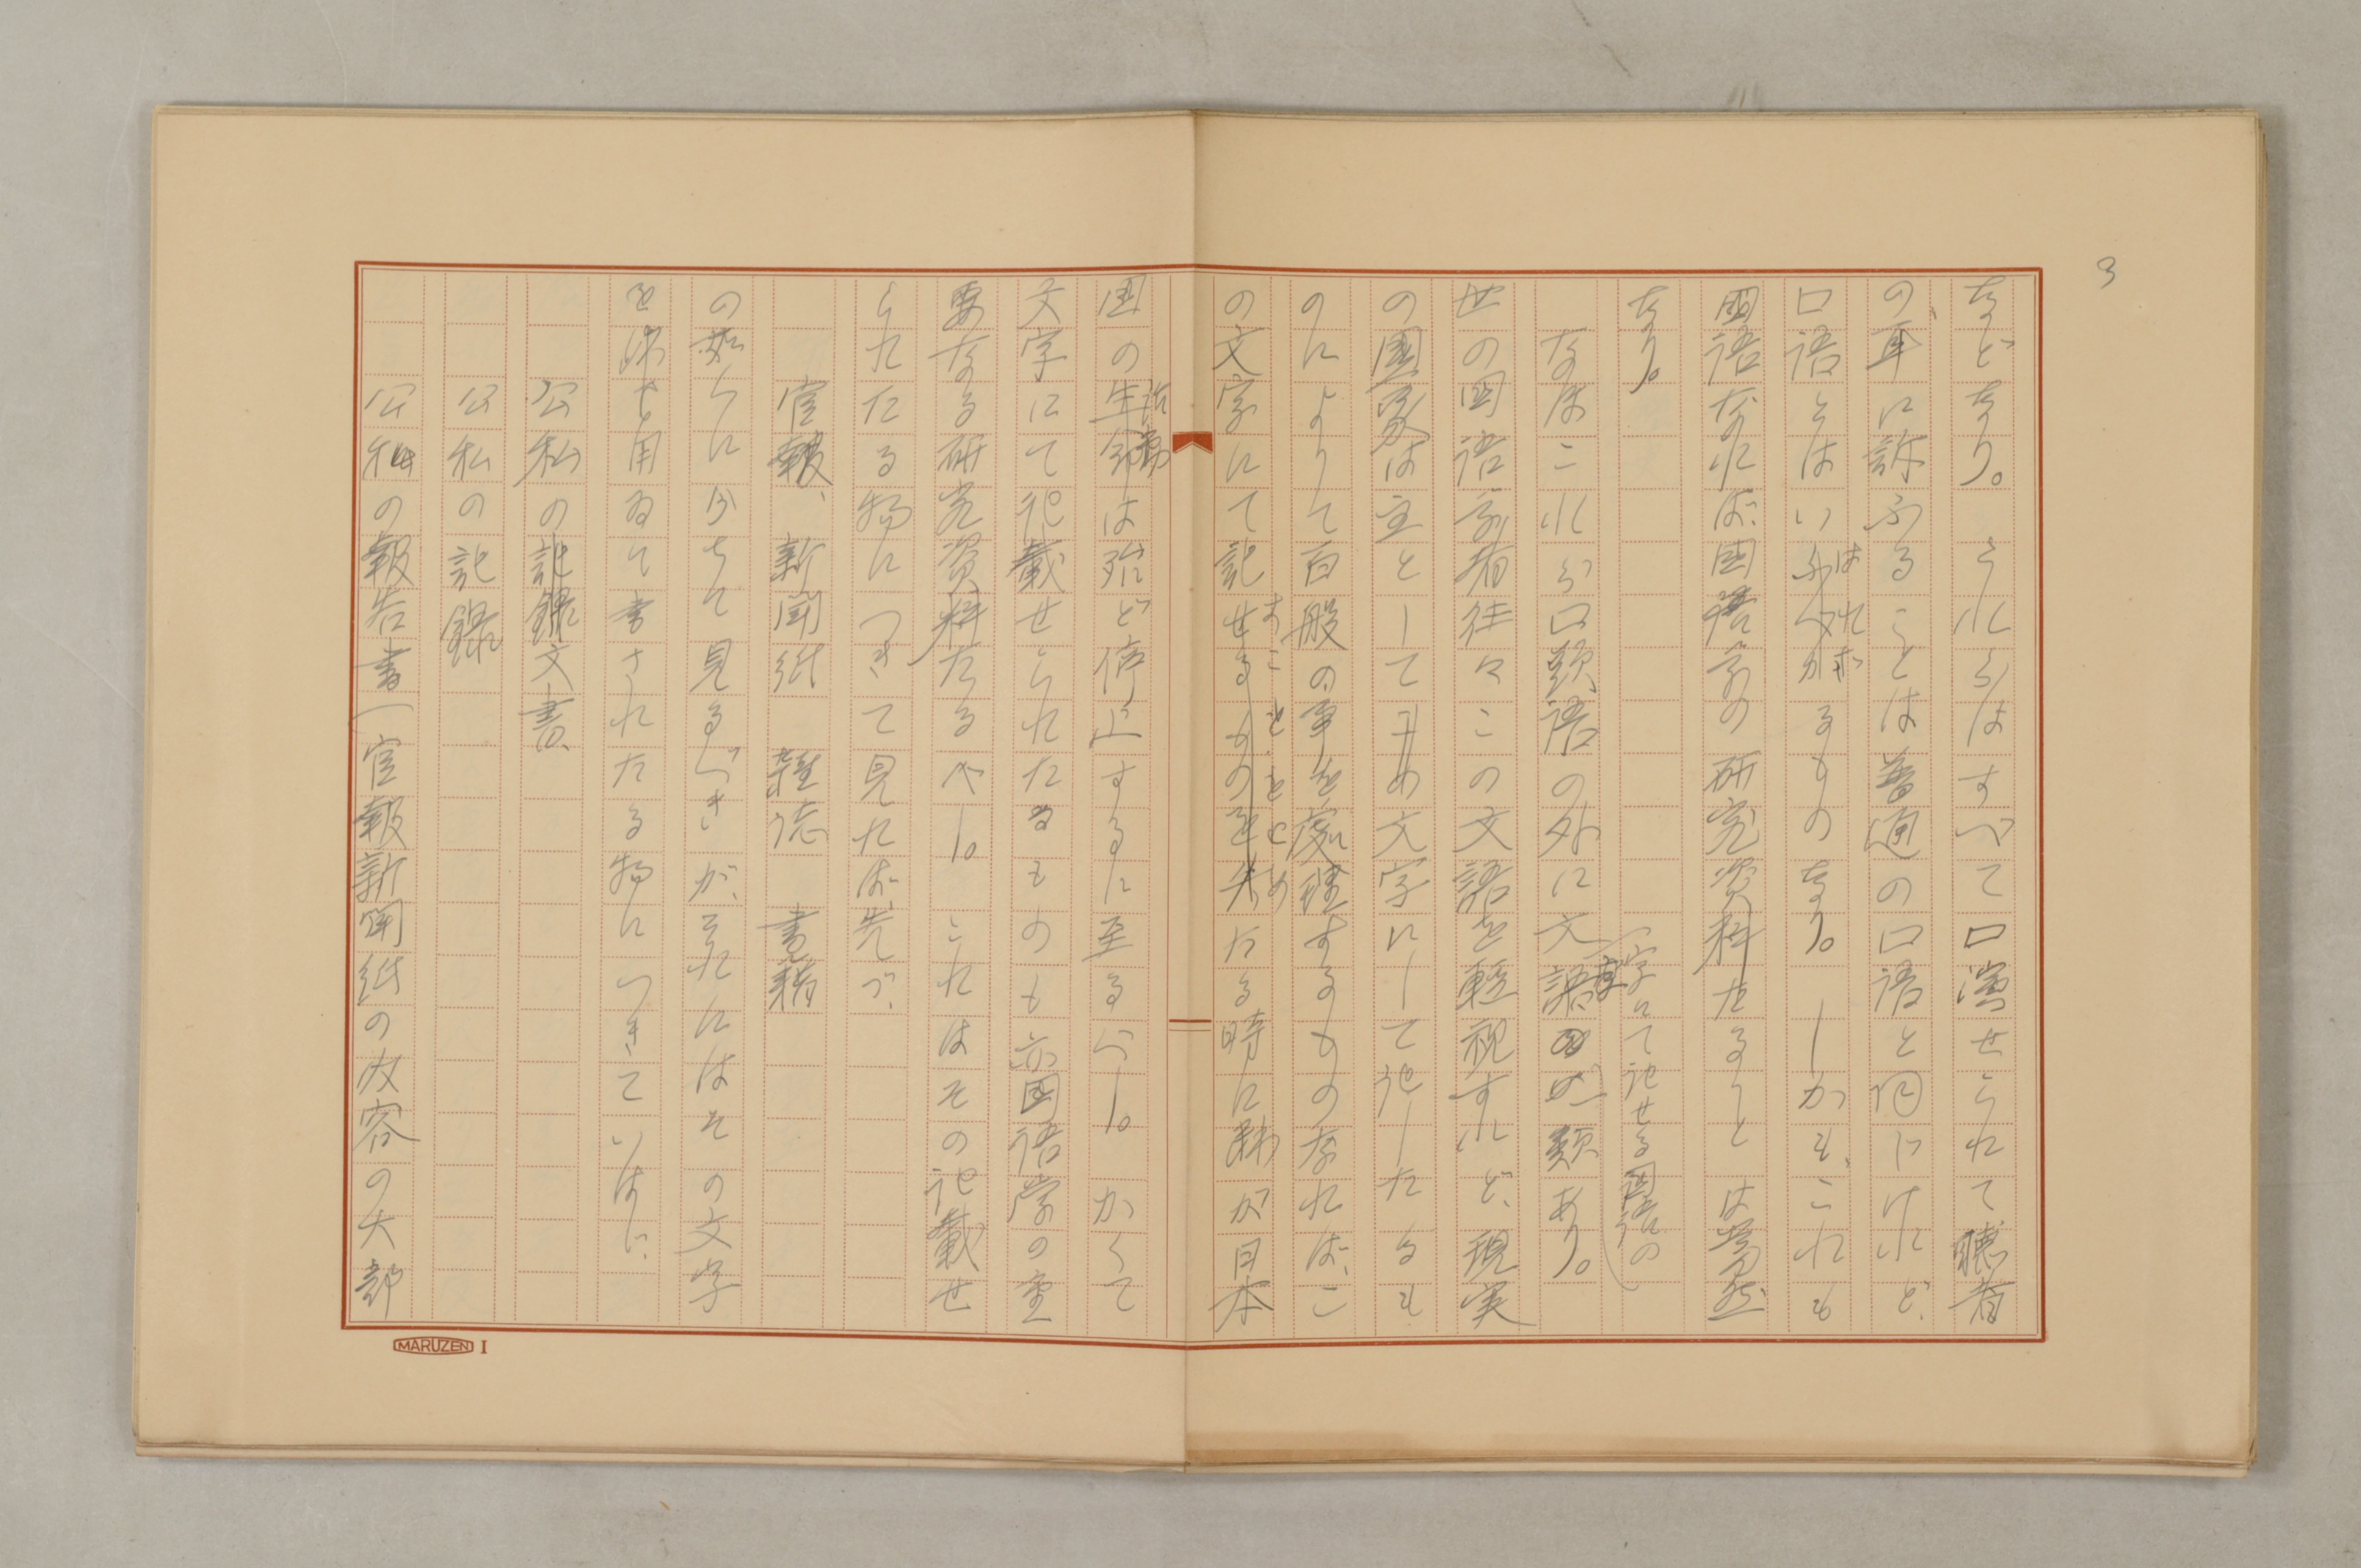 3
などなり。これらはすべて口演せられて聴者
の耳に訴ふることは普通の口語と同じけれど、
口語とはいはれざるものなり。しかも、これも
国語なれば国語学の研究資料たること は当然
なり。
なほこれら口頭語の外に文
(字にて記せる国語の)
類あり。
世の国語学者往々この文語を軽視すれど、現実
の國家は主として
文字にして記したるも
のによりて百般の事を處理するものなれば、こ
の文字にて記
おこることをとめ
たる時に
が日本
国の
活動
は殆ど停止するに至るべし。かくて
文字にて記載せられたるものも亦国語学の重
要なる研究資料たるべし。これはその記載せ
られたる物につきて見れば先づ、
官報、新聞紙 雑誌 書籍
の如くに分ちて見るべきが、それにはその文字
を
用ゐて書されたる物につきていはば、
公私の記録文書、
公私の記録
公私の報告書(官報新聞紙の内容の大部
MARUZEN I